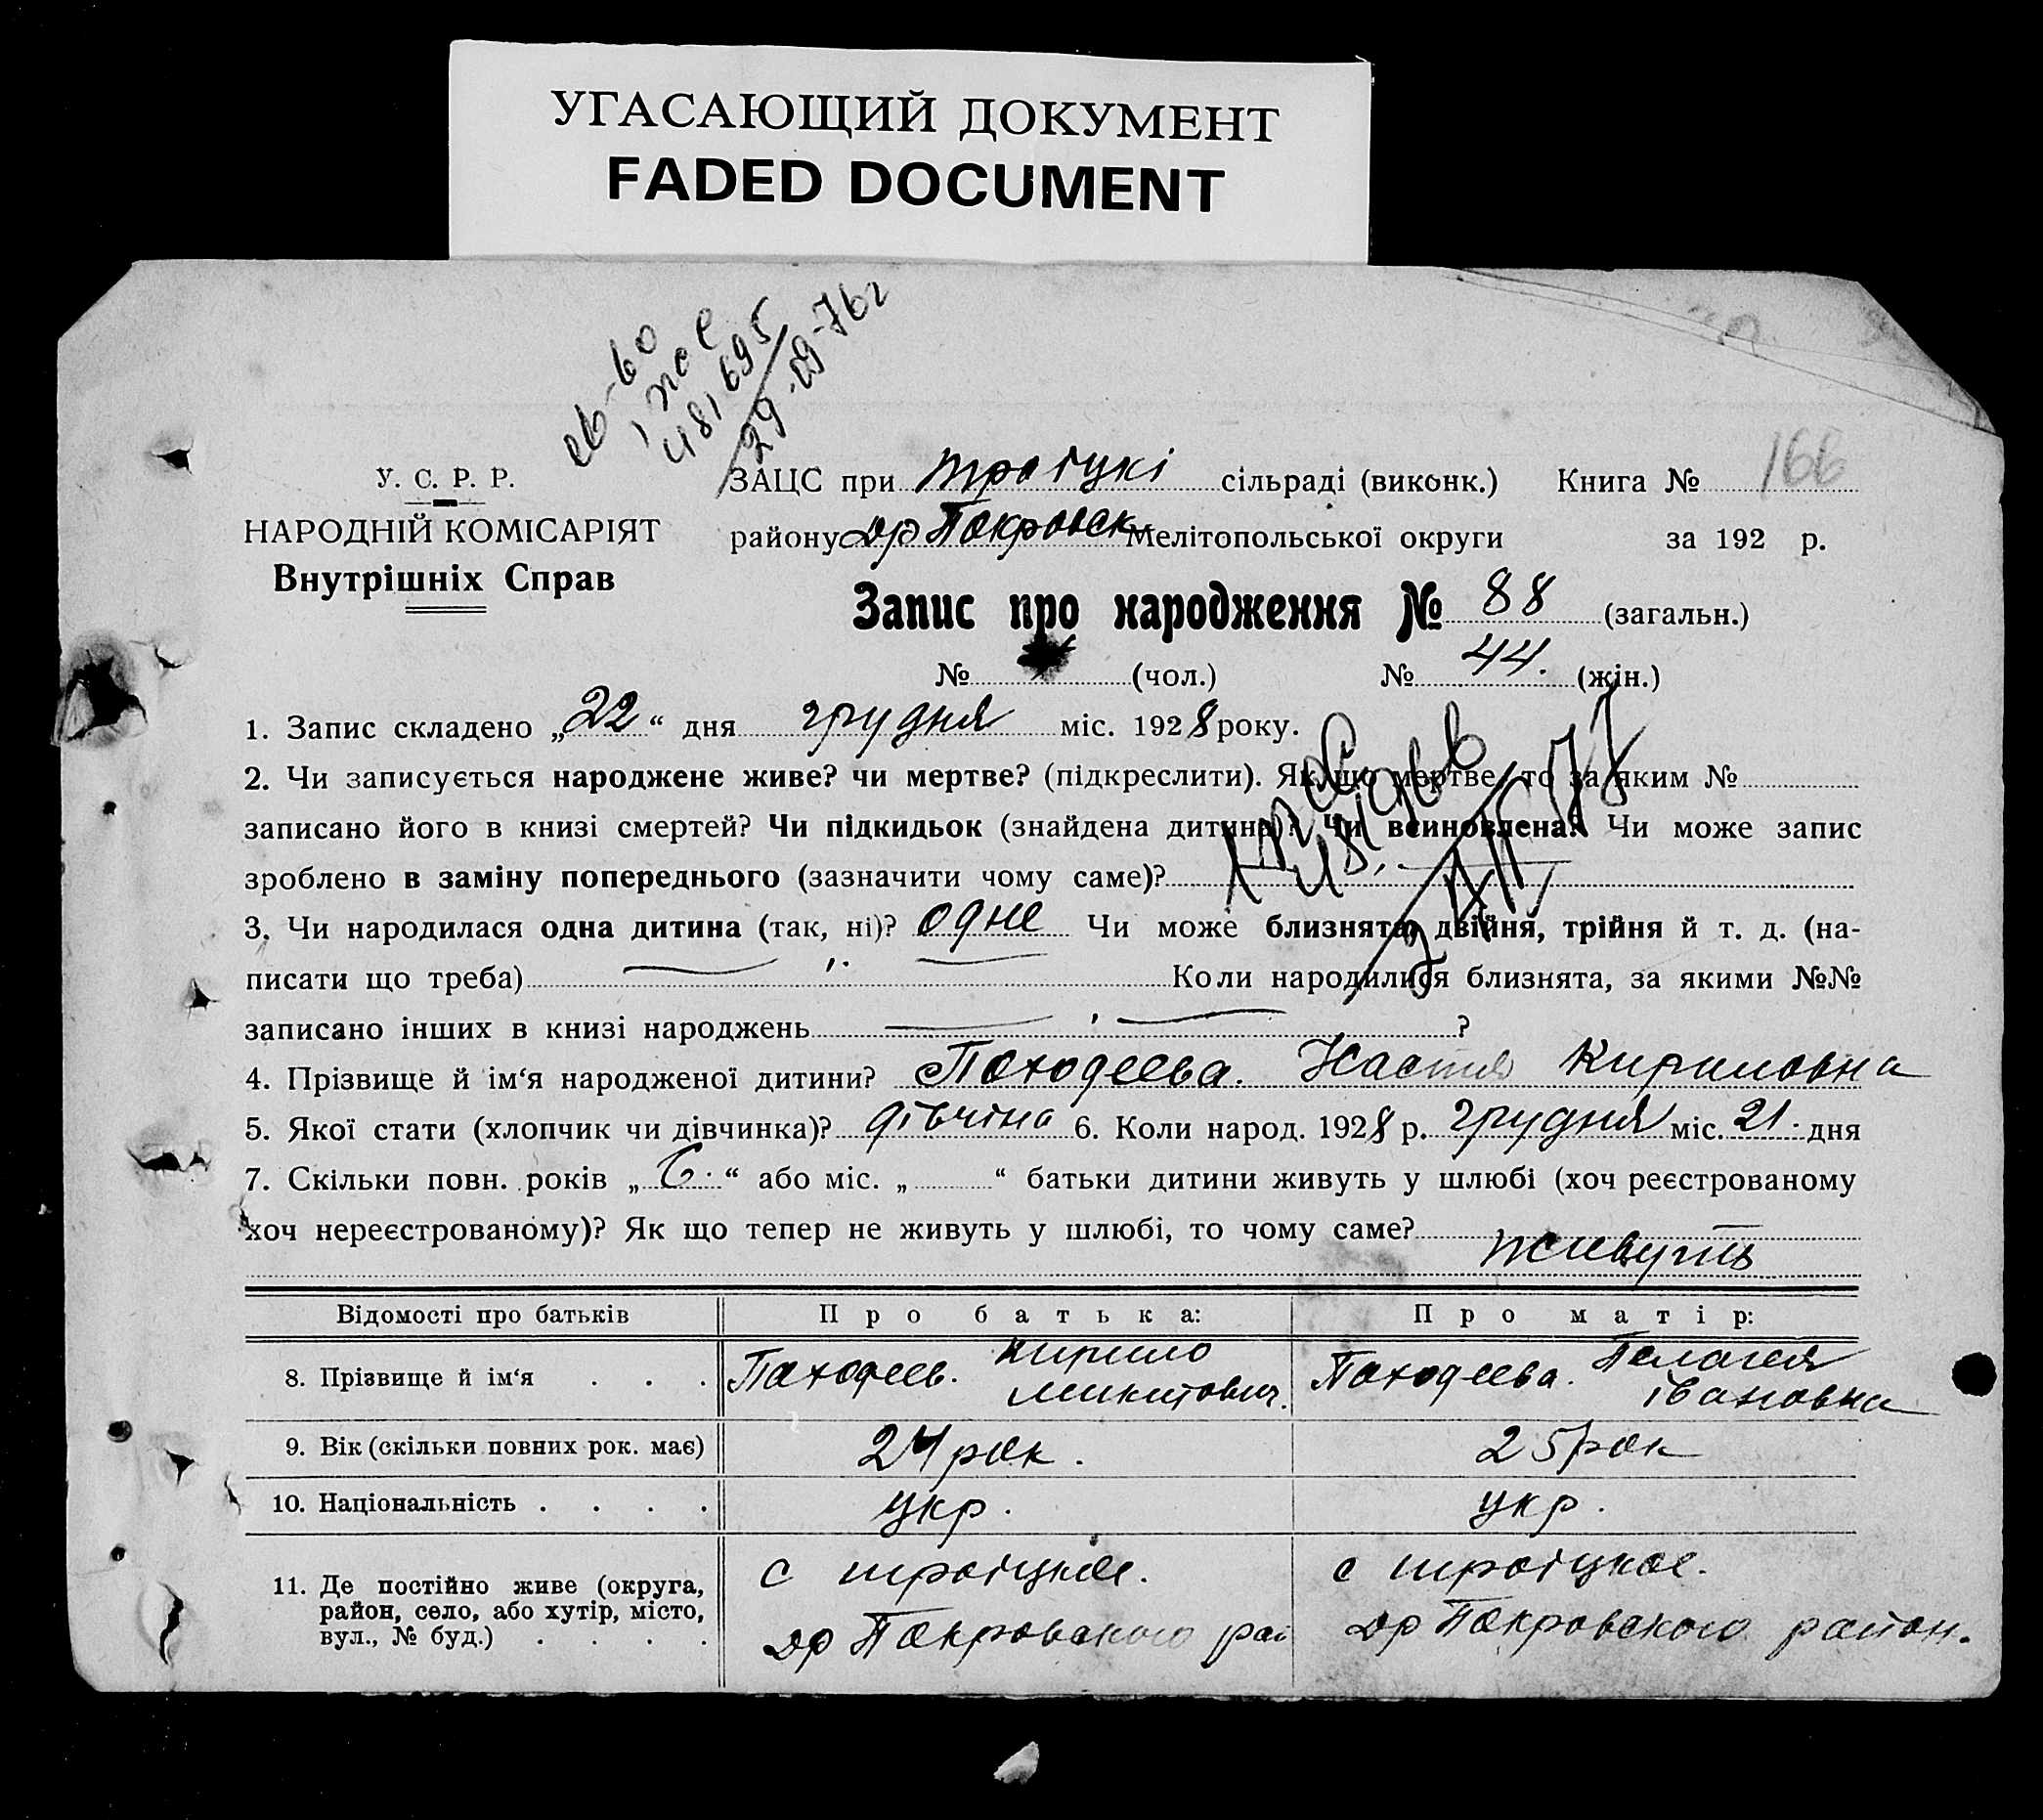 УГАСАЮЩИЙ ДОКУМЕНТ
FADED DOCUMENT
481695
29-09-76г
У. С. Р. Р.
НАРОДНІЙ КОМІСАРІЯТ
Внутрішніх Справ
ЗАЦС при Троіцкі сільраді (виконк.) Книга №
166
району Др Покровск Мелітопольської округи за 192 р.
Запис про народження № 88 (загальн.)
№ (чол.) № 44. (жін.)
1. Запис складено „22“ дня грудня міс. 1928 року.
2. Чи записується народжене живе? чи мертве? (підкреслити). Як що мертве, то за яким №
записано його в книзі смертей? Чи підкидьок (знайдена дитина)? Чи всиновлена? Чи може запис
зроблено в заміну попереднього (зазначити чому саме)?
3. Чи народилася одна дитина (так, ні)? одне Чи може близнята, двійня, трійня й т. д. (на-
писати що треба) Коли народилися близнята, за якими №№
записано інших в книзі народжень ?
4. Прізвище й ім‘я народженої дитини? Походеева. Настя Кириловна
5. Якої стати (хлопчик чи дівчинка)? дівчіна 6. Коли народ. 1928 р. грудня міс. 21. дня
7. Скільки повн. років „6.“ або міс. „ “ батьки дитини живуть у шлюбі (хоч реєстрованому
хоч нереєстрованому)? Як що тепер не живуть у шлюбі, то чому саме?
живуть
Відомості про батьків Про батька: Про матір:
8. Прізвище й ім‘я . . . Походеев. Кирило Микитович. Походеева. Пелагея Івановна
9. Вік (скільки повних рок. має) 24 рок. 25 рок
10. Національність . . . . укр. укр.
11. Де постійно живе (округа, район, село, або хутір, місто, вул., № буд.) . . . .
с троіцкое. Др Покровского рай
с троіцкое. Др Покровского район.